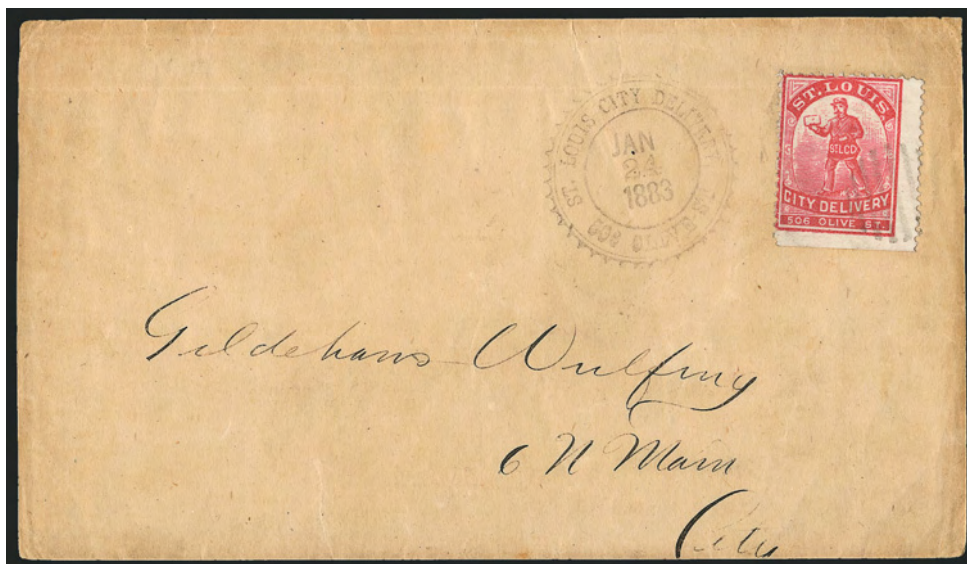 ST. LOUIS CITY DELIVERY
JAN
24
1883
506 OLIVE ST.
ST. LOUIS
ST.L.C.D.
CITY DELIVERY
506 OLIVE ST.
Gildehaus Wulfing
6 N Main
City